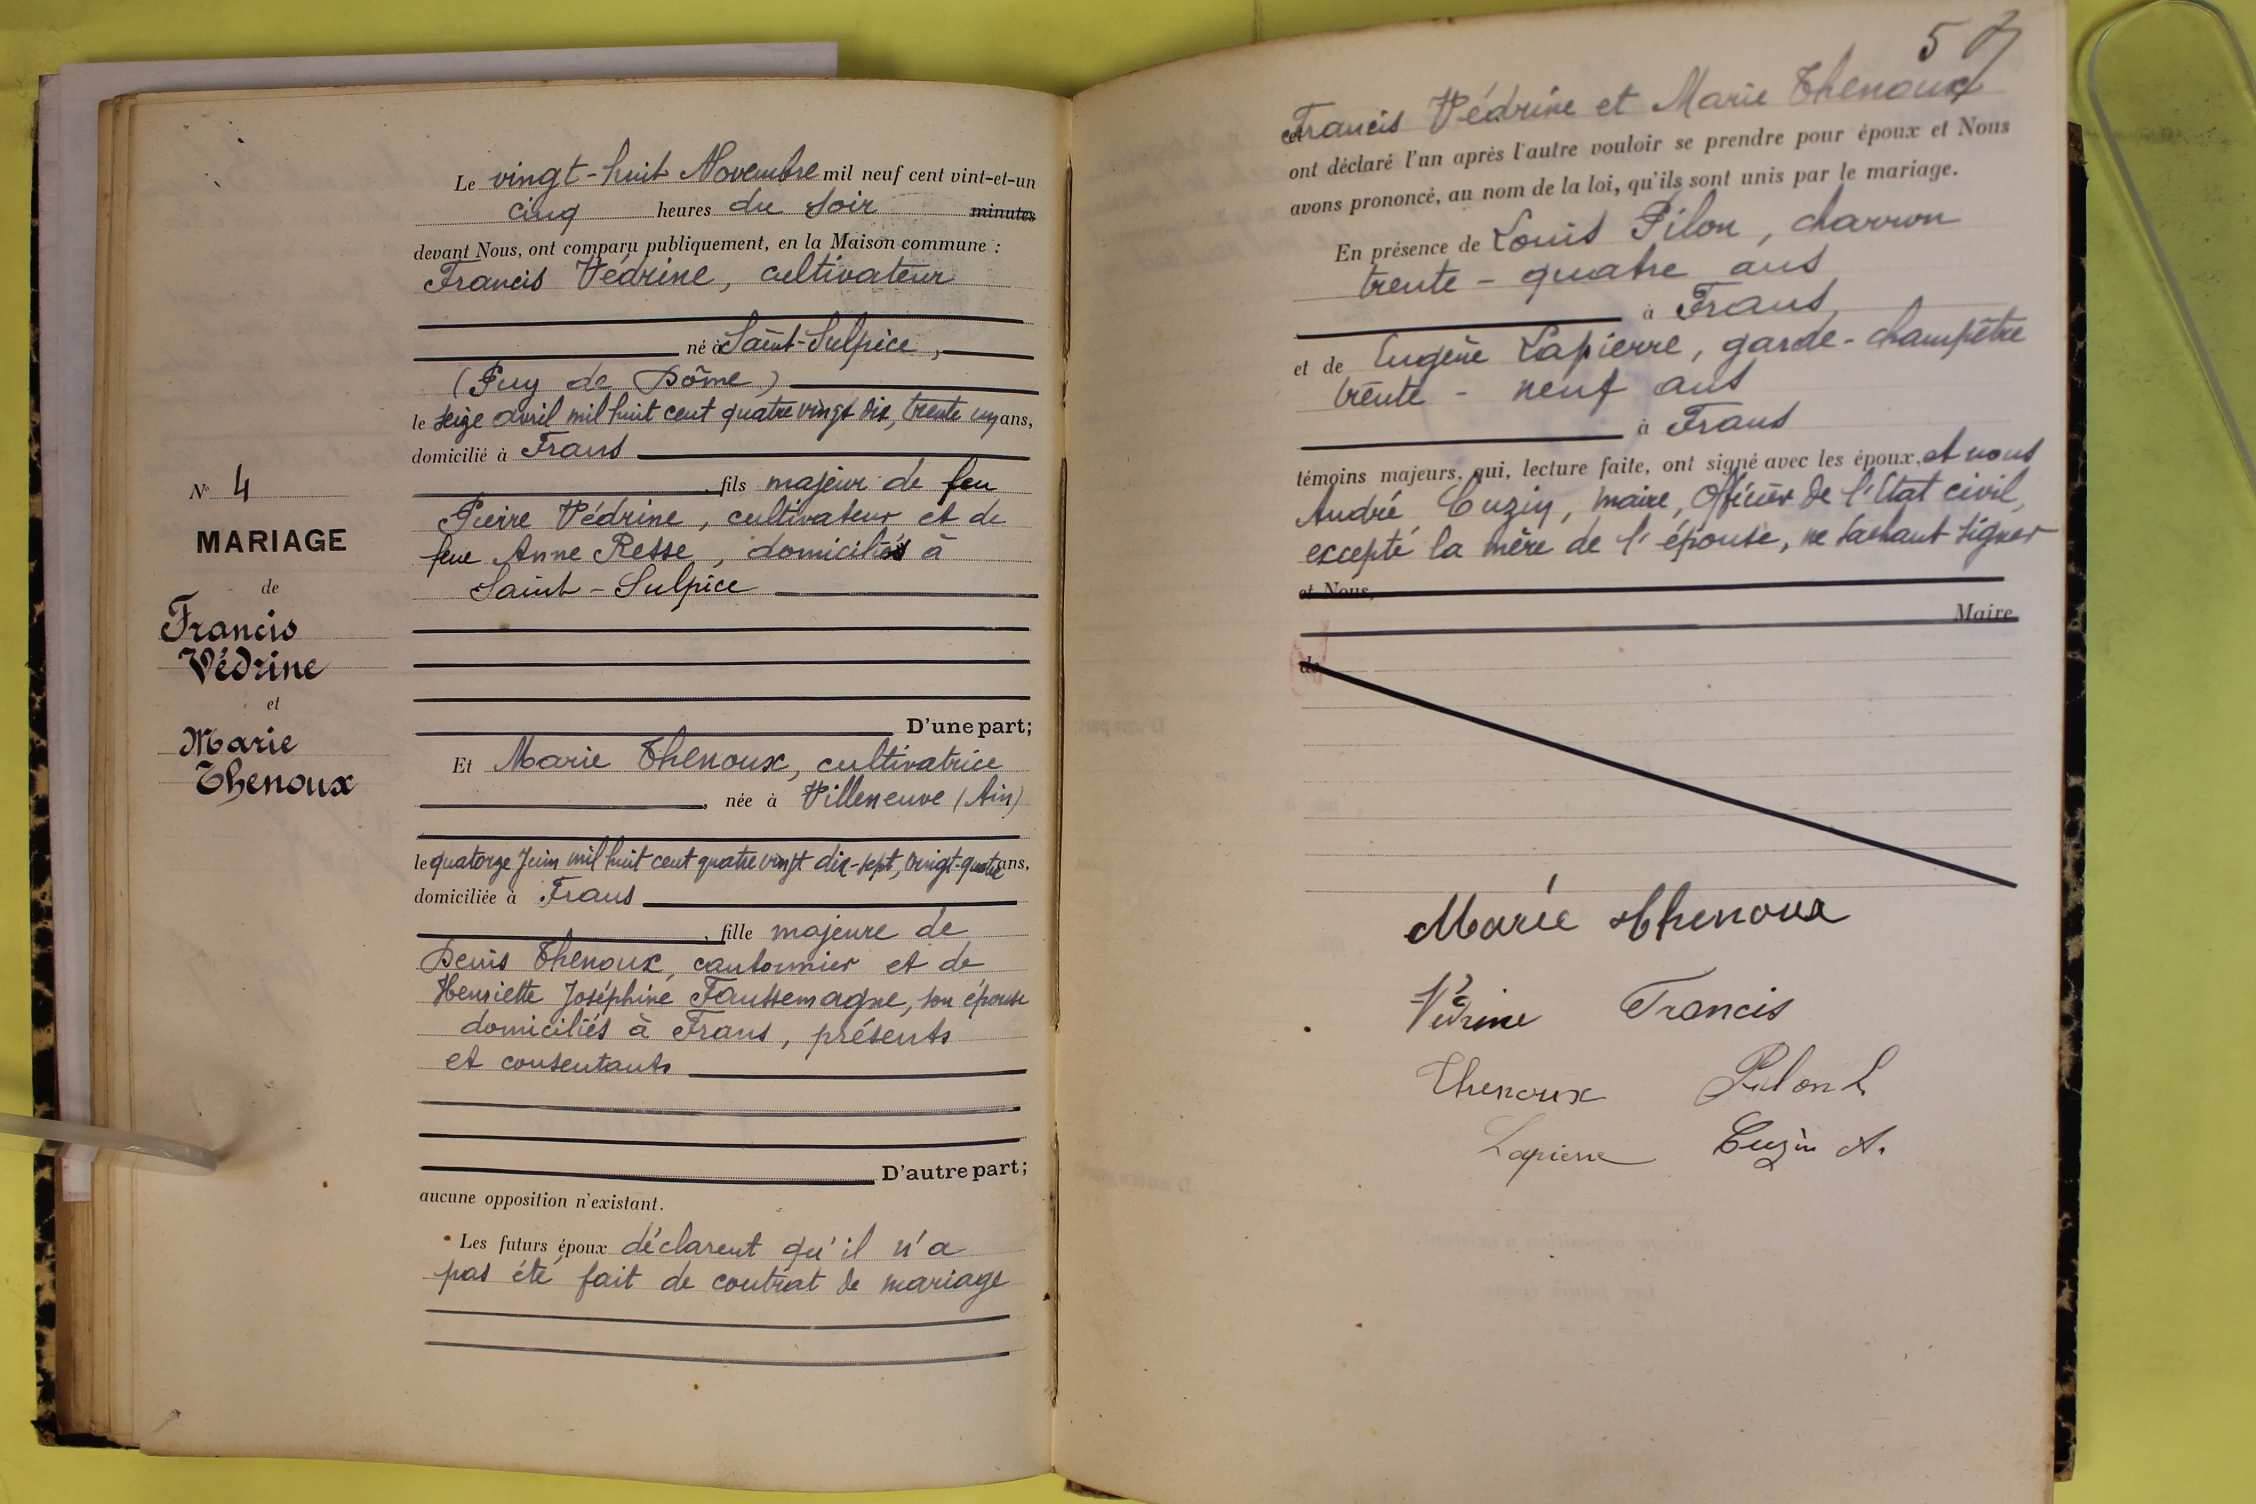 Le vingt-huit Novembre mil neuf cent vint-et-un
cinq heures du soir minutes
devant Nous, ont comparu publiquement, en la Maison commune :
Francis Védrine, cultivateur
né à Saint-Sulpice,
(Puy de Dôme)
le seize avril mil huit cent quatre vingt dix, trente un ans,
domicilié à Frans
fils majeur de feu
Pierre Védrine, cultivateur et de
feue Anne Resse, domiciliés à
Saint-Sulpice
D'une part;
Et Marie Thenoux, cultivatrice
, née à Villeneuve (Ain)
le quatorze Juin mil huit cent quatre vingt dix-sept, vingt-quatre ans,
domiciliée à Frans
, fille majeure de
Denis Thenoux, cantonnier et de
Henriette Joséphine Faussemagne, son épouse
domiciliés à Frans, présents
et consentants
D'autre part;
aucune opposition n'existant.
Les futurs époux déclarent qu'il n'a
pas été fait de contrat de mariage
N° 4
MARIAGE
de
Francis
Védrine
et
Marie
Thenoux
5
Francis Védrine et Marie Thenoux
ont déclaré l'un après l'autre vouloir se prendre pour époux et Nous
avons prononcé, au nom de la loi, qu'ils sont unis par le mariage.
En présence de Louis Pilon, charron
trente-quatre ans
à Frans,
et de Eugène Lapierre, garde-champêtre
trente-neuf ans
à Frans
témoins majeurs, qui, lecture faite, ont signé avec les époux, et nous
André Cuzin, maire, Officier de l'Etat civil,
excepté la mère de l'épouse, ne sachant signer
et Nous,
Maire
de
Marie Thenoux
Védrine Francis
Thenoux Pilon L
Lapierre Cuzin A.